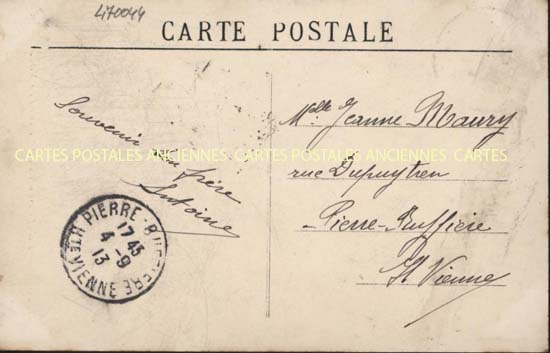 470044
CARTE POSTALE
Souvenir
d'un frère
Antoine
Mlle Jeanne Maury
rue Dupuytren
Pierre-Buffière
Hte Vienne
PIERRE-BUFFIERE
17 45
4 - 9
13
HTE VIENNE
CARTES POSTALES ANCIENNES CARTES POSTALES ANCIENNES CARTES